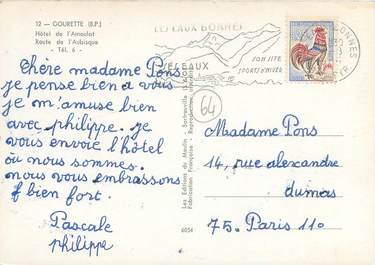 12 — GOURETTE (B.P.)
Hôtel de l'Amoulat
Route de l'Aubisque
- Tél. 6 -
LES EAUX BONNES
SON SITE
SPORTS D'HIVER
Chère madame Pons
je pense bien a vous
je m'amuse bien
avec philippe. je
vous envoie l'hôtel
où nous sommes.
nous vous embrassons
bien fort.
Pascale
philippe
Les Editions du Moulin - Sartrouville
Fabrication Française - Reproduction interdite
6054
64
Madame Pons
14, rue alexandre
dumas
75. Paris 11o